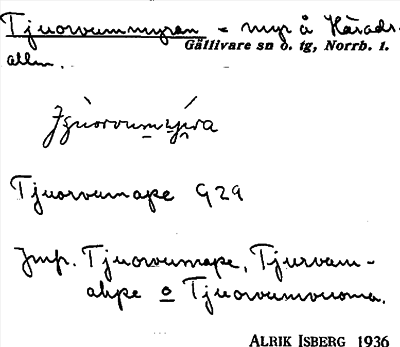 Tjuorvummyran = myr å Härads-
Gällivare sn o. tg, Norrb. l.
allm.
Tjuorvumape G29
Jmp. Tjuorvumape, Tjurvam-
ahpe o Tjuorvumvuoma.
ALRIK ISBERG 1936